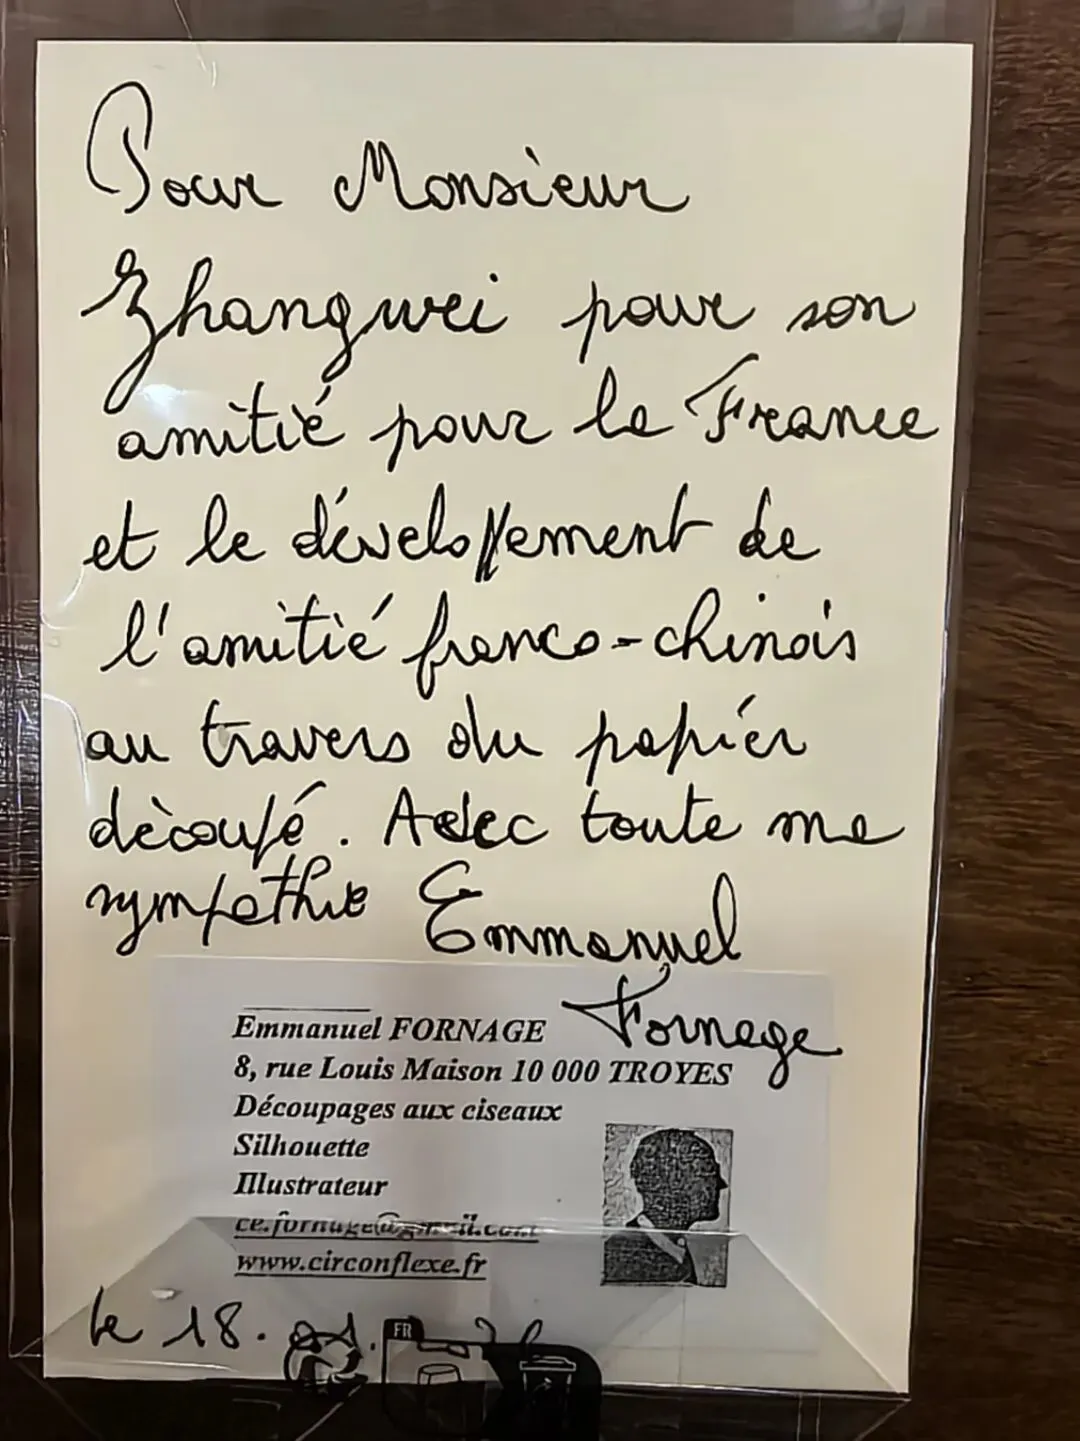 Pour Monsieur
Zhangwei pour son
amitié pour la France
et le développement de
l'amitié franco-chinois
au travers du papier
dècoupé. Avec toute ma
sympathie Emmanuel
Fornage
Emmanuel FORNAGE
8, rue Louis Maison 10 000 TROYES
Découpages aux ciseaux
Silhouette
Illustrateur
ce.fornage@gmail.com
www.circonflexe.fr
le 18.
FR